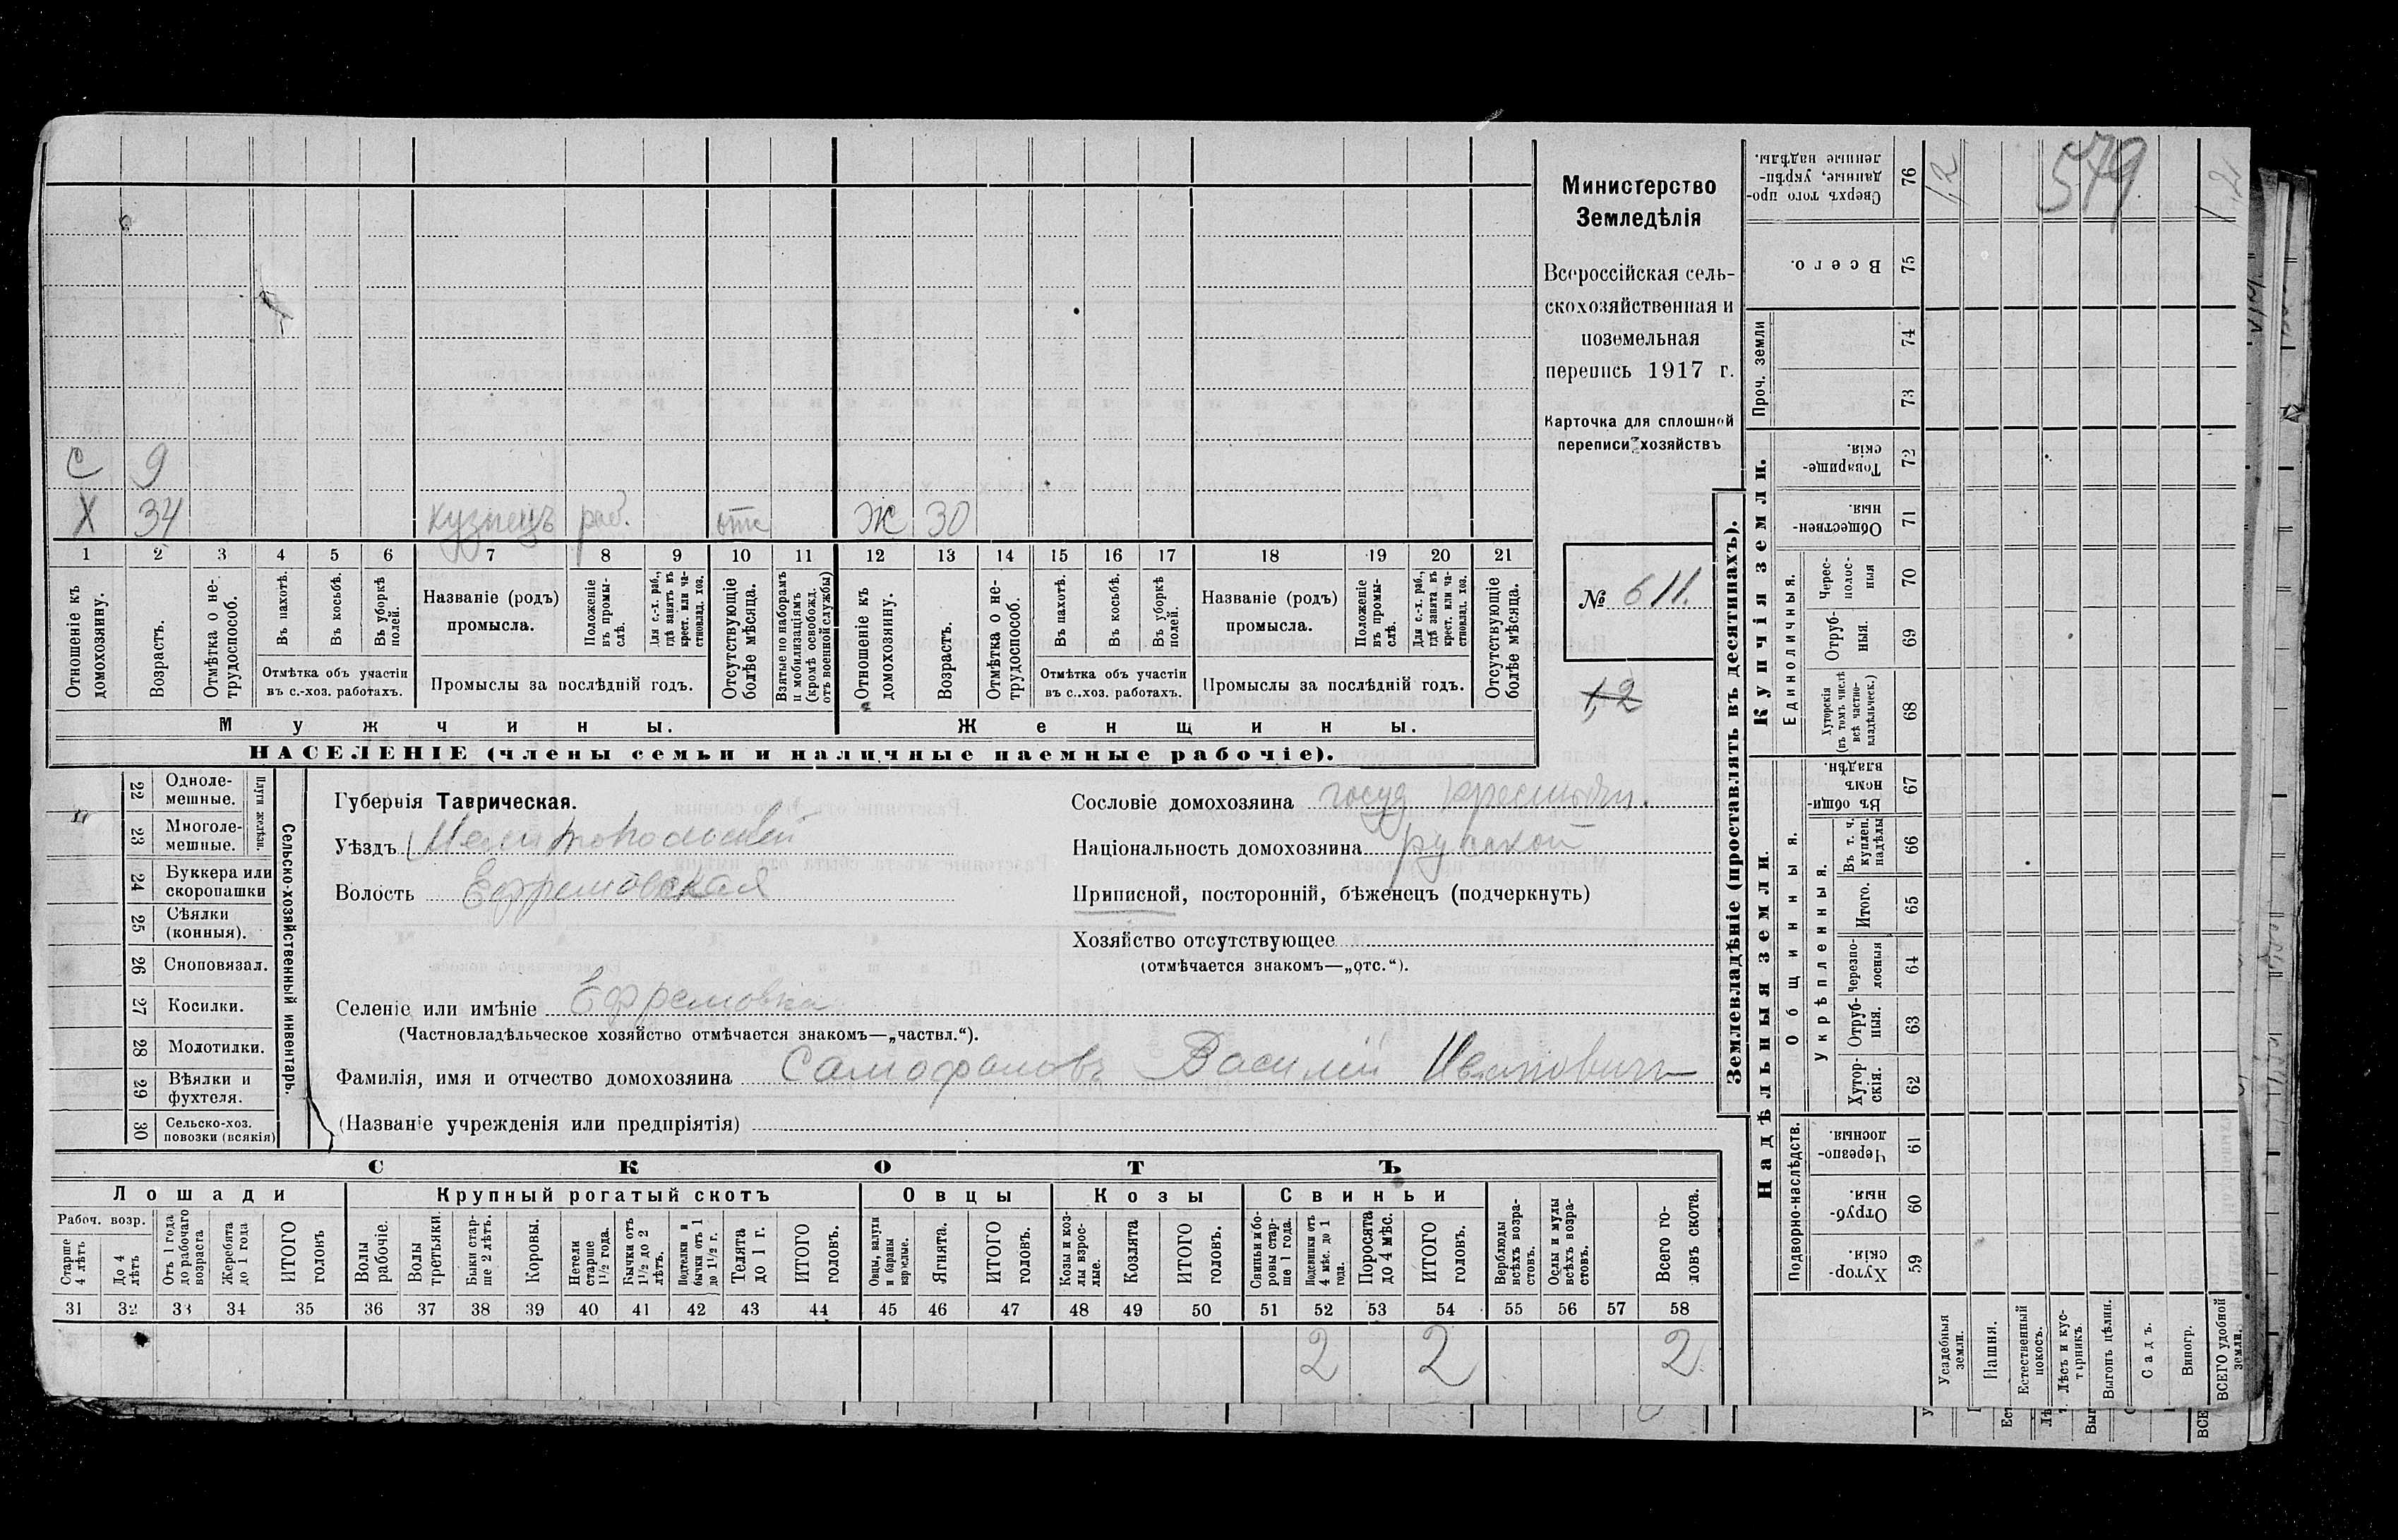 579
Министерство
Земледѣлія
Всероссійская сель-
скохозяйственная и
поземельная
перепись 1917 г.
Карточка для сплошной
переписи хозяйствъ
№ 611.
1,2
С 9
Х 34 кузнецъ раб. отс Ж 30
1 2 3 4 5 6 7 8 9 10 11 12 13 14 15 16 17 18 19 20 21
Отношеніе къ домохозяину.
Возрастъ.
Отмѣтка о не-трудоспособ.
Въ пахотѣ.
Въ косьбѣ.
Въ уборкѣ полей.
Отмѣтка объ участіи
въ с.-хоз. работахъ.
Названіе (родъ)
промысла.
Положеніе въ промы-слѣ.
Для с.-х. раб., гдѣ занятъ въ крест. или ча-стновлад. хоз.
Промыслы за послѣдній годъ.
Отсутствующіе болѣе мѣсяца.
Взятые по наборамъ и мобилизаціямъ (кромѣ освобожд. отъ военной службы)
Отношеніе къ домохозяину.
Возрастъ.
Отмѣтка о не-трудоспособ.
Въ пахотѣ.
Въ косьбѣ.
Въ уборкѣ полей.
Отмѣтка объ участіи
въ с..хоз. работахъ.
Названіе (родъ)
промысла.
Положеніе въ промы-слѣ.
Для с.-х. раб., гдѣ занята въ крест. или ча-стновлад. хоз.
Промыслы за послѣдній годъ.
Отсутствующіе болѣе мѣсяца.
Мужчины. Женщины.
НАСЕЛЕНІЕ (члены семьи и наличные наемные рабочіе).
Сельско-хозяйственный инвентарь.
Плуги желѣзн.
22 Одноле-мешные.
23 Многоле-мешные.
24 Буккера или скоропашки
25 Сѣялки (конныя).
26 Сноповязал.
27 Косилки.
28 Молотилки.
29 Вѣялки и фухтеля.
30 Сельско-хоз. повозки (всякія)
Губернія Таврическая.
Уѣздъ Мелитопольскій
Волость Ефремовская
Селеніе или имѣніе Ефремовка
(Частновладѣльческое хозяйство отмѣчается знакомъ—„частвл.“).
Фамилія, имя и отчество домохозяина Самофаловъ Василій Ивановичъ
(Названіе учрежденія или предпріятія)
Сословіе домохозяина госуд крестьян.
Національность домохозяина русской
Приписной, посторонній, бѣженецъ (подчеркнуть)
Хозяйство отсутствующее
(отмѣчается знакомъ—„отс.“).
СКОТЪ
Лошади Крупный рогатый скотъ Овцы Козы Свиньи
Рабоч. возр.
Старше 4 лѣтъ
До 4 лѣтъ
Отъ 1 года до рабочаго возраста
Жеребята до 1 года
ИТОГО головъ
Волы рабочіе.
Волы третьяки.
Быки стар-ше 2 лѣтъ.
Коровы.
Нетели старше 1½ года.
Бычки отъ 1½ до 2 лѣтъ.
Подтелки и бычки отъ 1 до 1½ г.
Телята до 1 г.
ИТОГО головъ.
Овцы, валухи и бараны взрослые.
Ягнята.
ИТОГО головъ.
Козы и коз-лы взрос-лые.
Козлята
ИТОГО головъ.
Свиньи и бо-ровы стар-ше 1 года.
Подсвинки отъ 4 мѣс. до 1 года.
Поросята до 4 мѣс.
ИТОГО головъ.
Верблюды всѣхъ возра-стовъ.
Ослы и мулы всѣхъ возра-стовъ.
Всего го-ловъ скота.
31 32 33 34 35 36 37 38 39 40 41 42 43 44 45 46 47 48 49 50 51 52 53 54 55 56 57 58
2 2 2
Землевладѣніе (проставлять въ десятинахъ).
Надѣльныя земли
Купчія земли.
Проч. земли
Подворно-наслѣдств.
Общинныя.
Укрѣпленныя.
Единоличныя.
Сверхъ того про-данные, укрѣп-ленные надѣлы. 76 1,2 1,2
Всего. 75
74
73
Товарище-скія. 72
Обществен-ныя. 71
Черес-полос-ныя 70
Отруб-ныя. 69
Хуторскія (въ томъ числѣ всѣ частно-владѣльческ.) 68
Въ общи-номъ владѣн. 67
Въ т. ч. куплен. надѣлы 66
Итого. 65
Черезпо-лосныя 64
Отруб-ныя. 63
Хутор-скія. 62
Черезпо-лосныя. 61
Отруб-ныя. 60
Хутор-скія. 59
Усадебныя земли.
Пашня.
Естественный покосъ.
Лѣсъ и кус-тарникъ.
Выгонъ цѣлин.
Садъ.
Виногр.
ВСЕГО удобной земли.